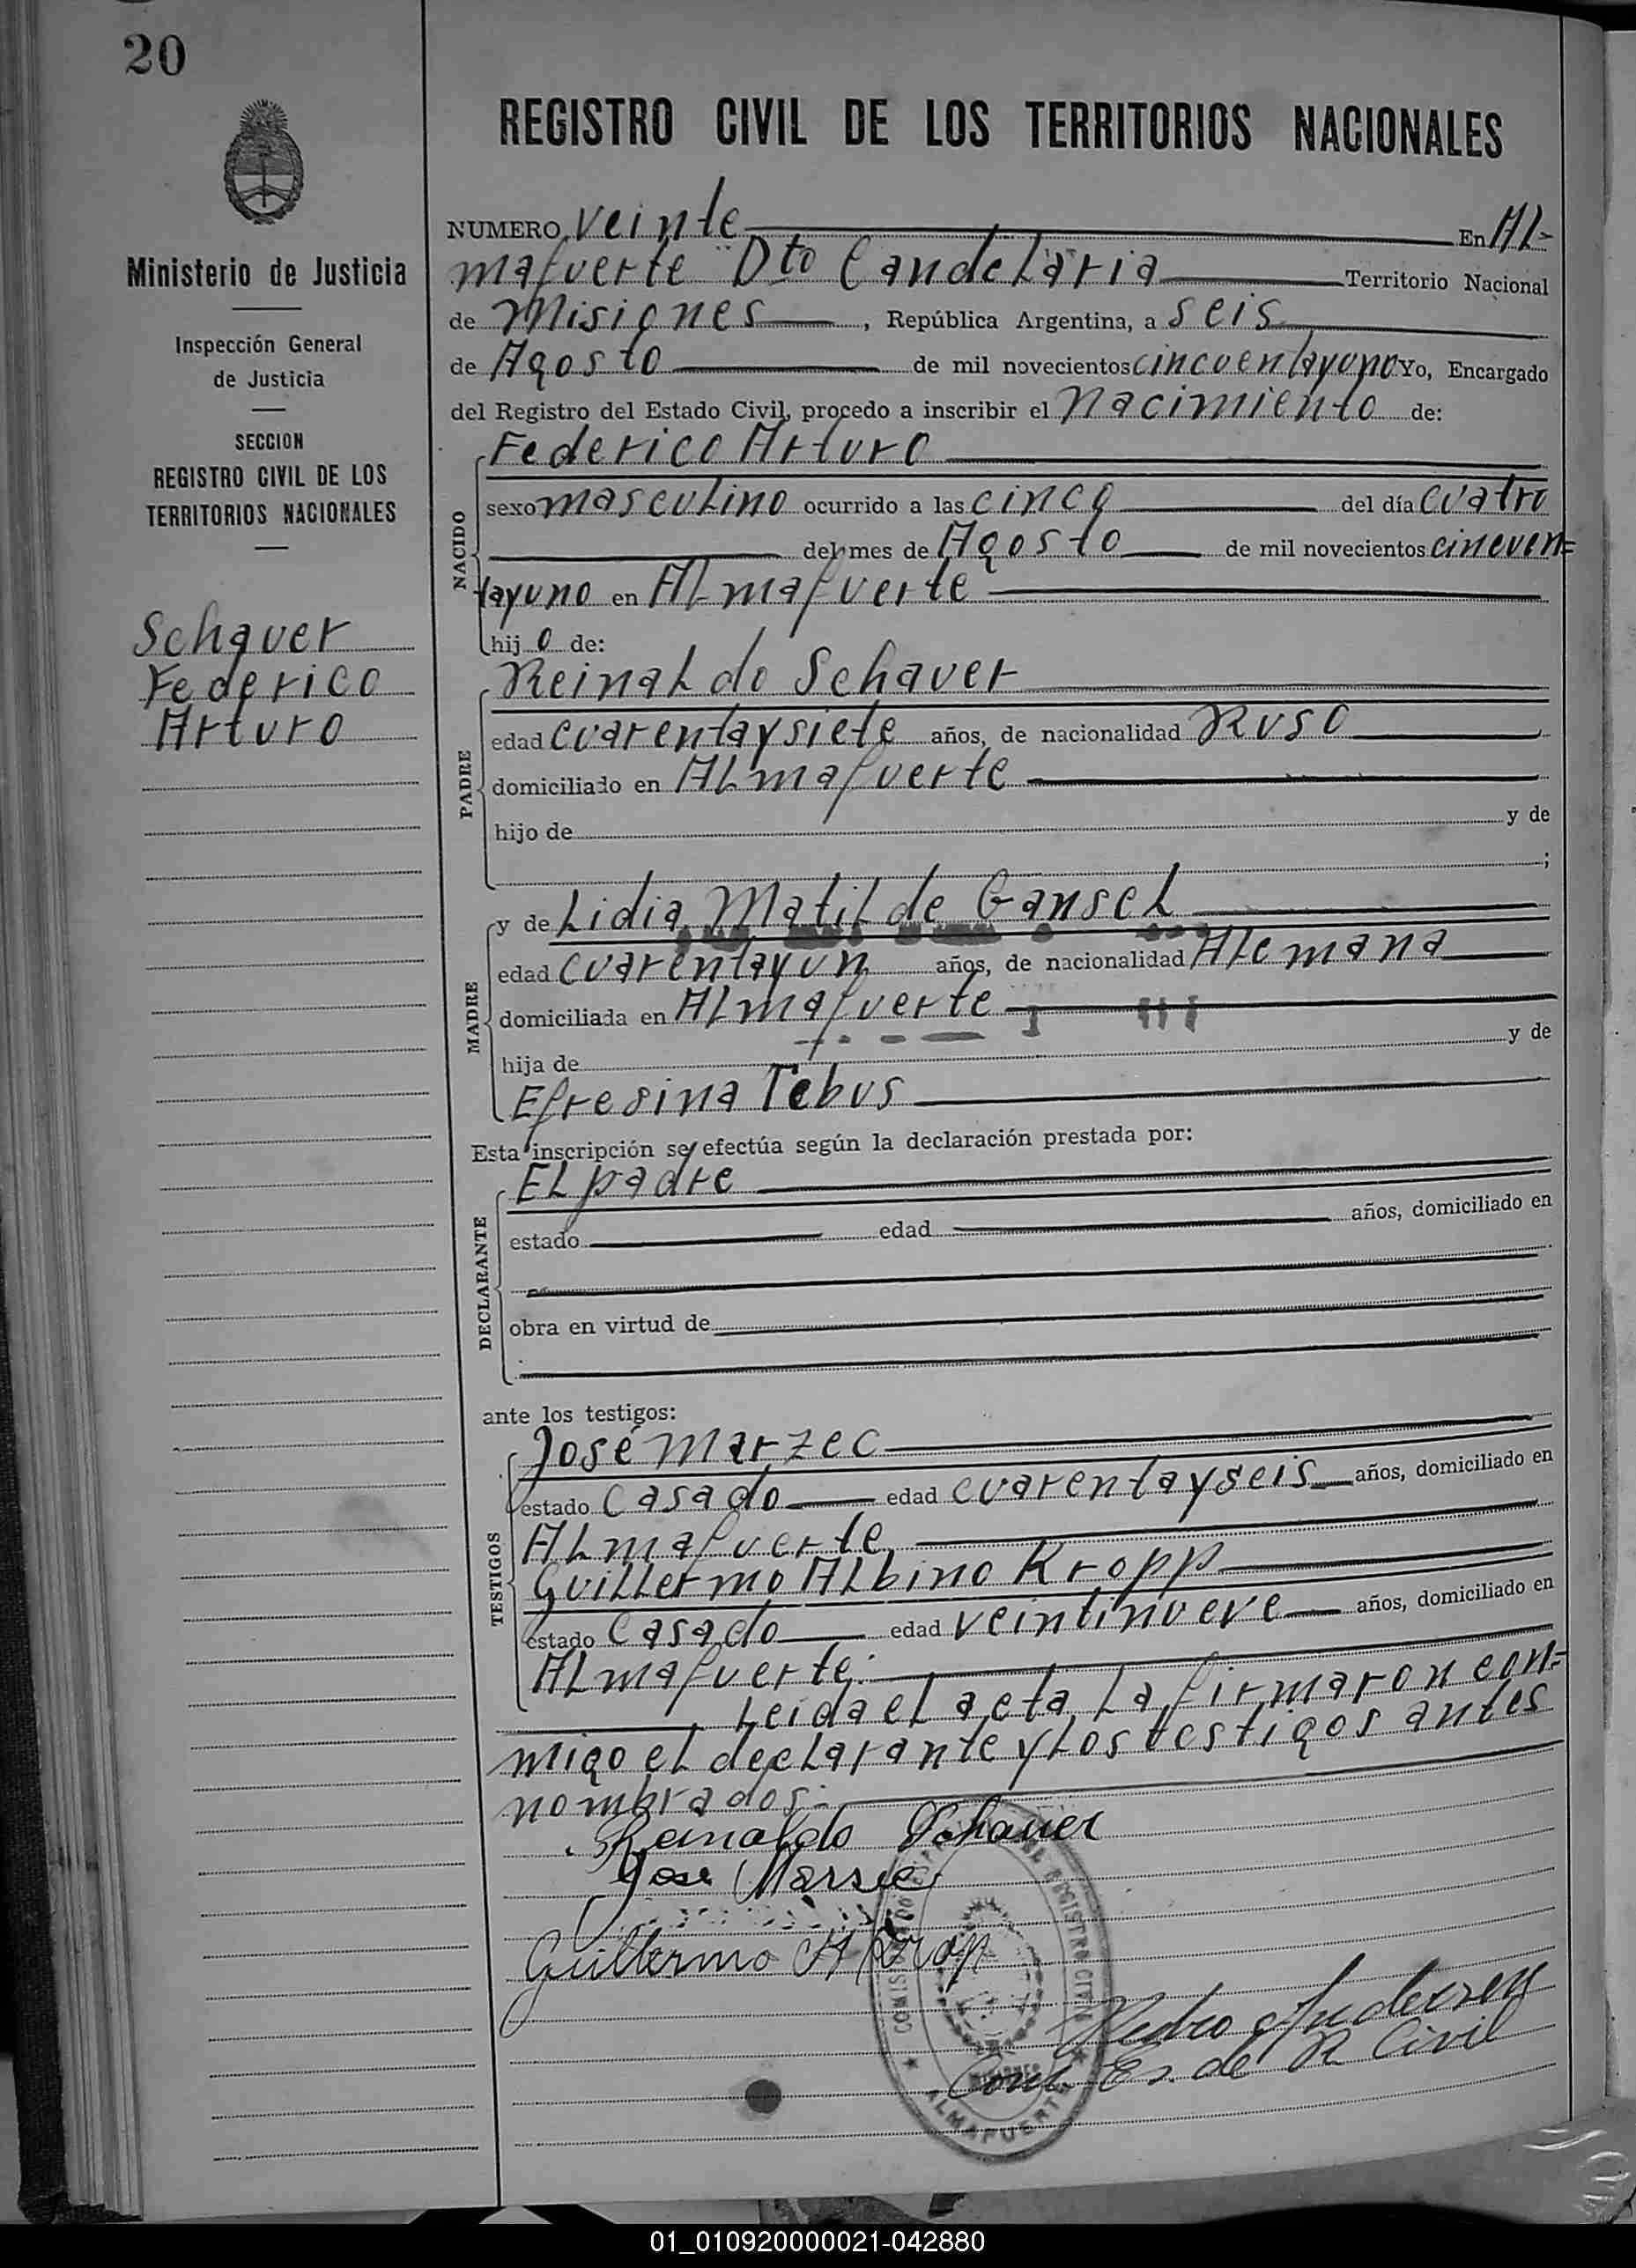 20
REGISTRO CIVIL DE LOS TERRITORIOS NACIONALES
Ministerio de Justicia
Inspección General
de Justicia
SECCION
REGISTRO CIVIL DE LOS
TERRITORIOS NACIONALES
Schauer
Federico
Arturo
NUMERO veinte En Al-
mafuerte Dto Candelaria Territorio Nacional
de Misiones, República Argentina, a seis
de Agosto de mil novecientos cincuentayuno Yo, Encargado
del Registro del Estado Civil, procedo a inscribir el Nacimiento de:
NACIDO
Federico Arturo
sexo masculino ocurrido a las cinco del día cuatro
del mes de Agosto de mil novecientos cincuen=
tayuno en Almafuerte
hijo de:
PADRE
Reinaldo Schauer
edad cuarentaysiete años, de nacionalidad Ruso
domiciliado en Almafuerte
hijo de y de
;
MADRE
y de Lidia Matilde Gansel
edad cuarentayun años, de nacionalidad Alemana
domiciliada en Almafuerte
hija de y de
Efresina Tebus
Esta inscripción se efectúa según la declaración prestada por:
DECLARANTE
El padre
estado edad años, domiciliado en
obra en virtud de
ante los testigos:
TESTIGOS
José Marzec
estado Casado edad cuarentayseis años, domiciliado en
Almafuerte
Guillermo Albino Kropp
estado Casado edad veintinueve años, domiciliado en
Almafuerte.
Leida el acta, la firmaron con=
migo el declarante y los testigos antes
nombrados.-
Reinaldo Schauer
Jose Marzec
Guillermo A Krop
REGISTRO CIVIL
ALMAFUERTE
Pedro
Es. de R Civil
01_010920000021-042880